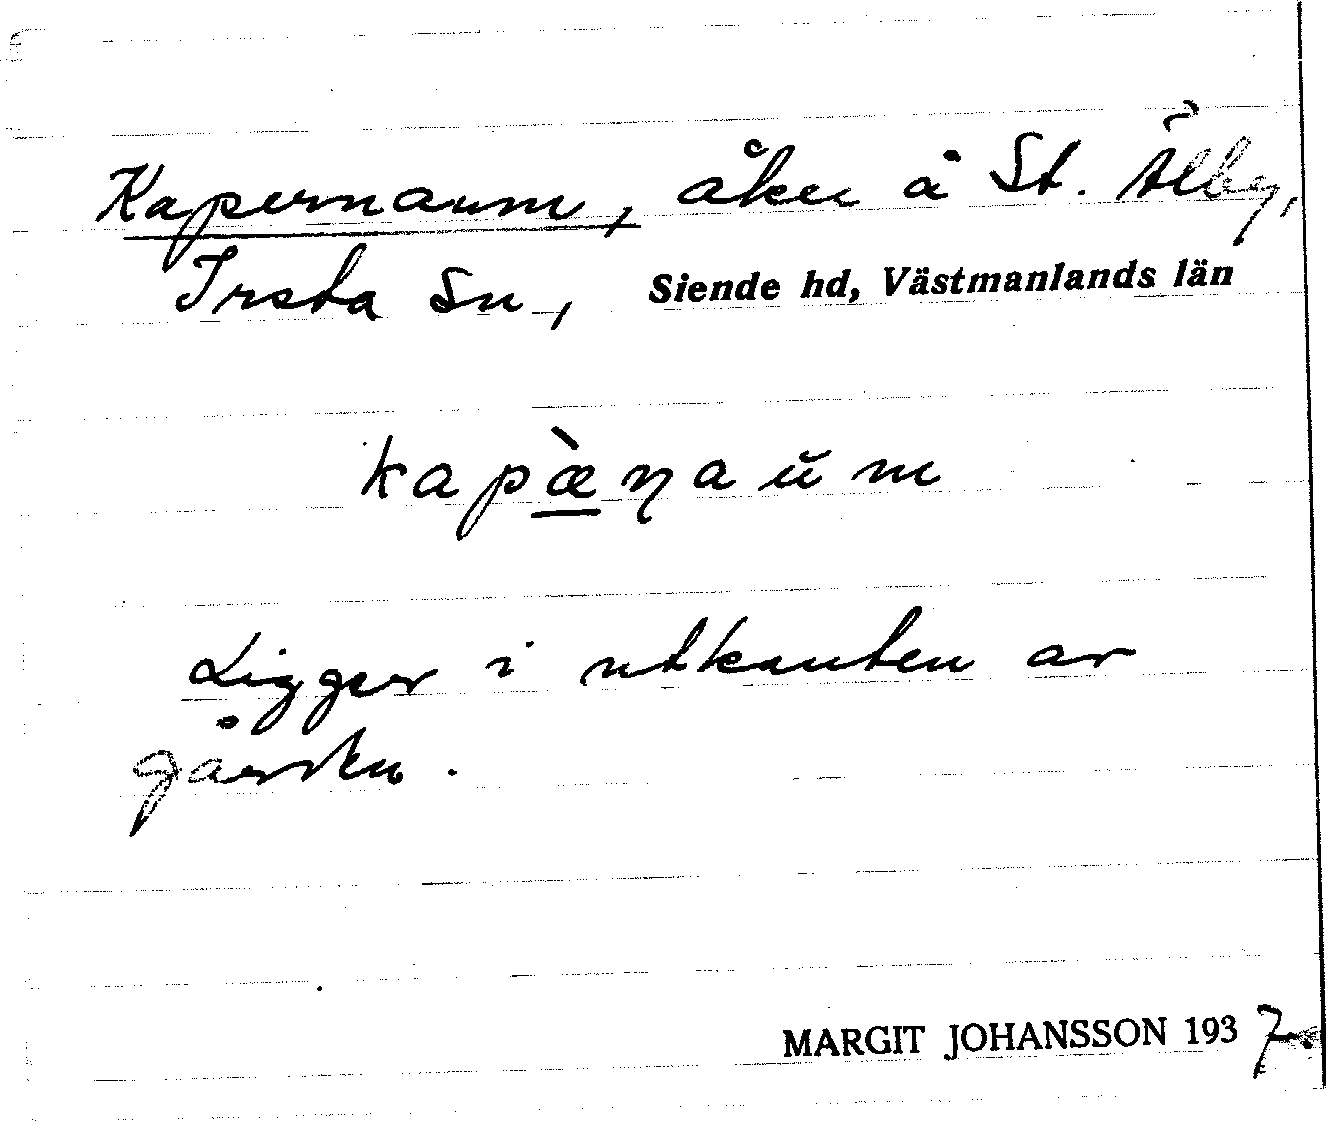 Kapernaum, åker å St. Älby,
Irsta sn, Siende hd, Västmanlands län
kapæ̱̀ɳaŭm
Ligger i utkanten av
gården.
MARGIT JOHANSSON 1937.